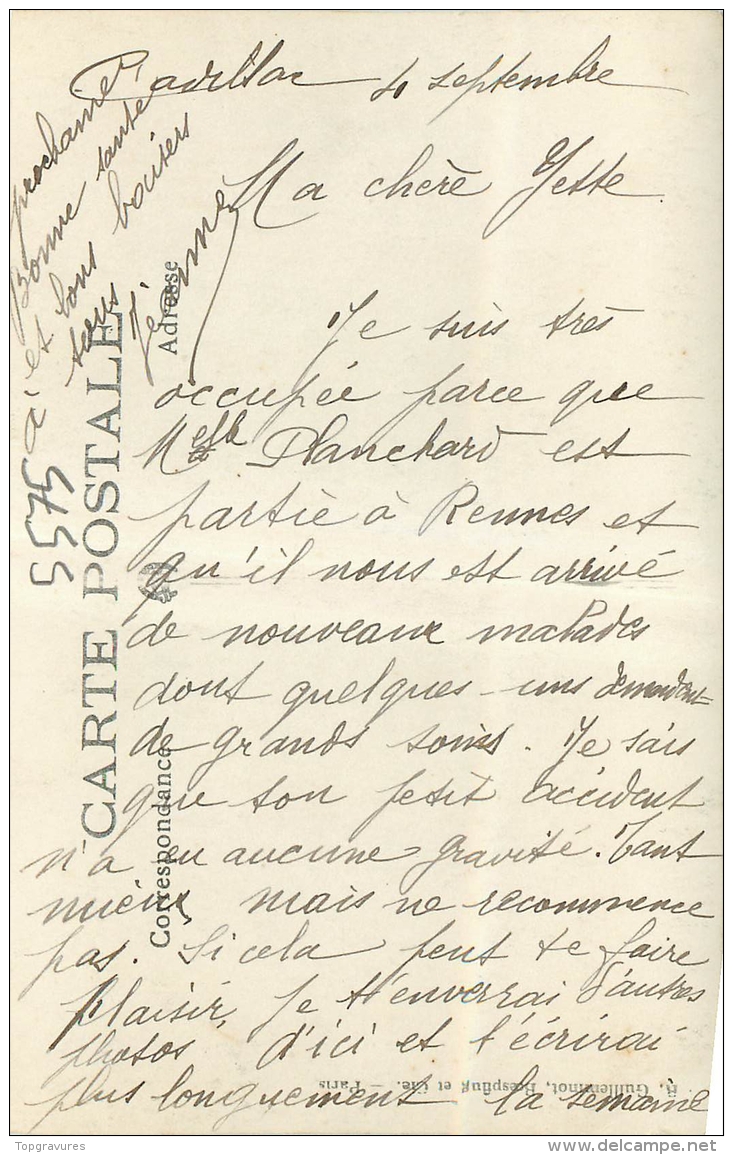 Cadillac 4 septembre
Ma chère Yette
Je suis très
occupée parce que
Melle Planchard est
partie à Rennes et
qu'il nous est arrivé
de nouveaux malades
dont quelques-uns demandent
de grands soins. Je sais
que ton petit accident
n'a eu aucune gravité. Tant
mieux mais ne recommence
pas. Si cela peut te faire
plaisir, je t'enverrai d'autres
photos d'ici et t'écrirai
plus longuement la semaine
prochaine
Bonne santé
et bons baisers
à tous
5575
CARTE POSTALE
Correspondance
Adresse
R. Guilleminot, Bœspflug et Cie. — Paris
Topgravures
delcampe.net